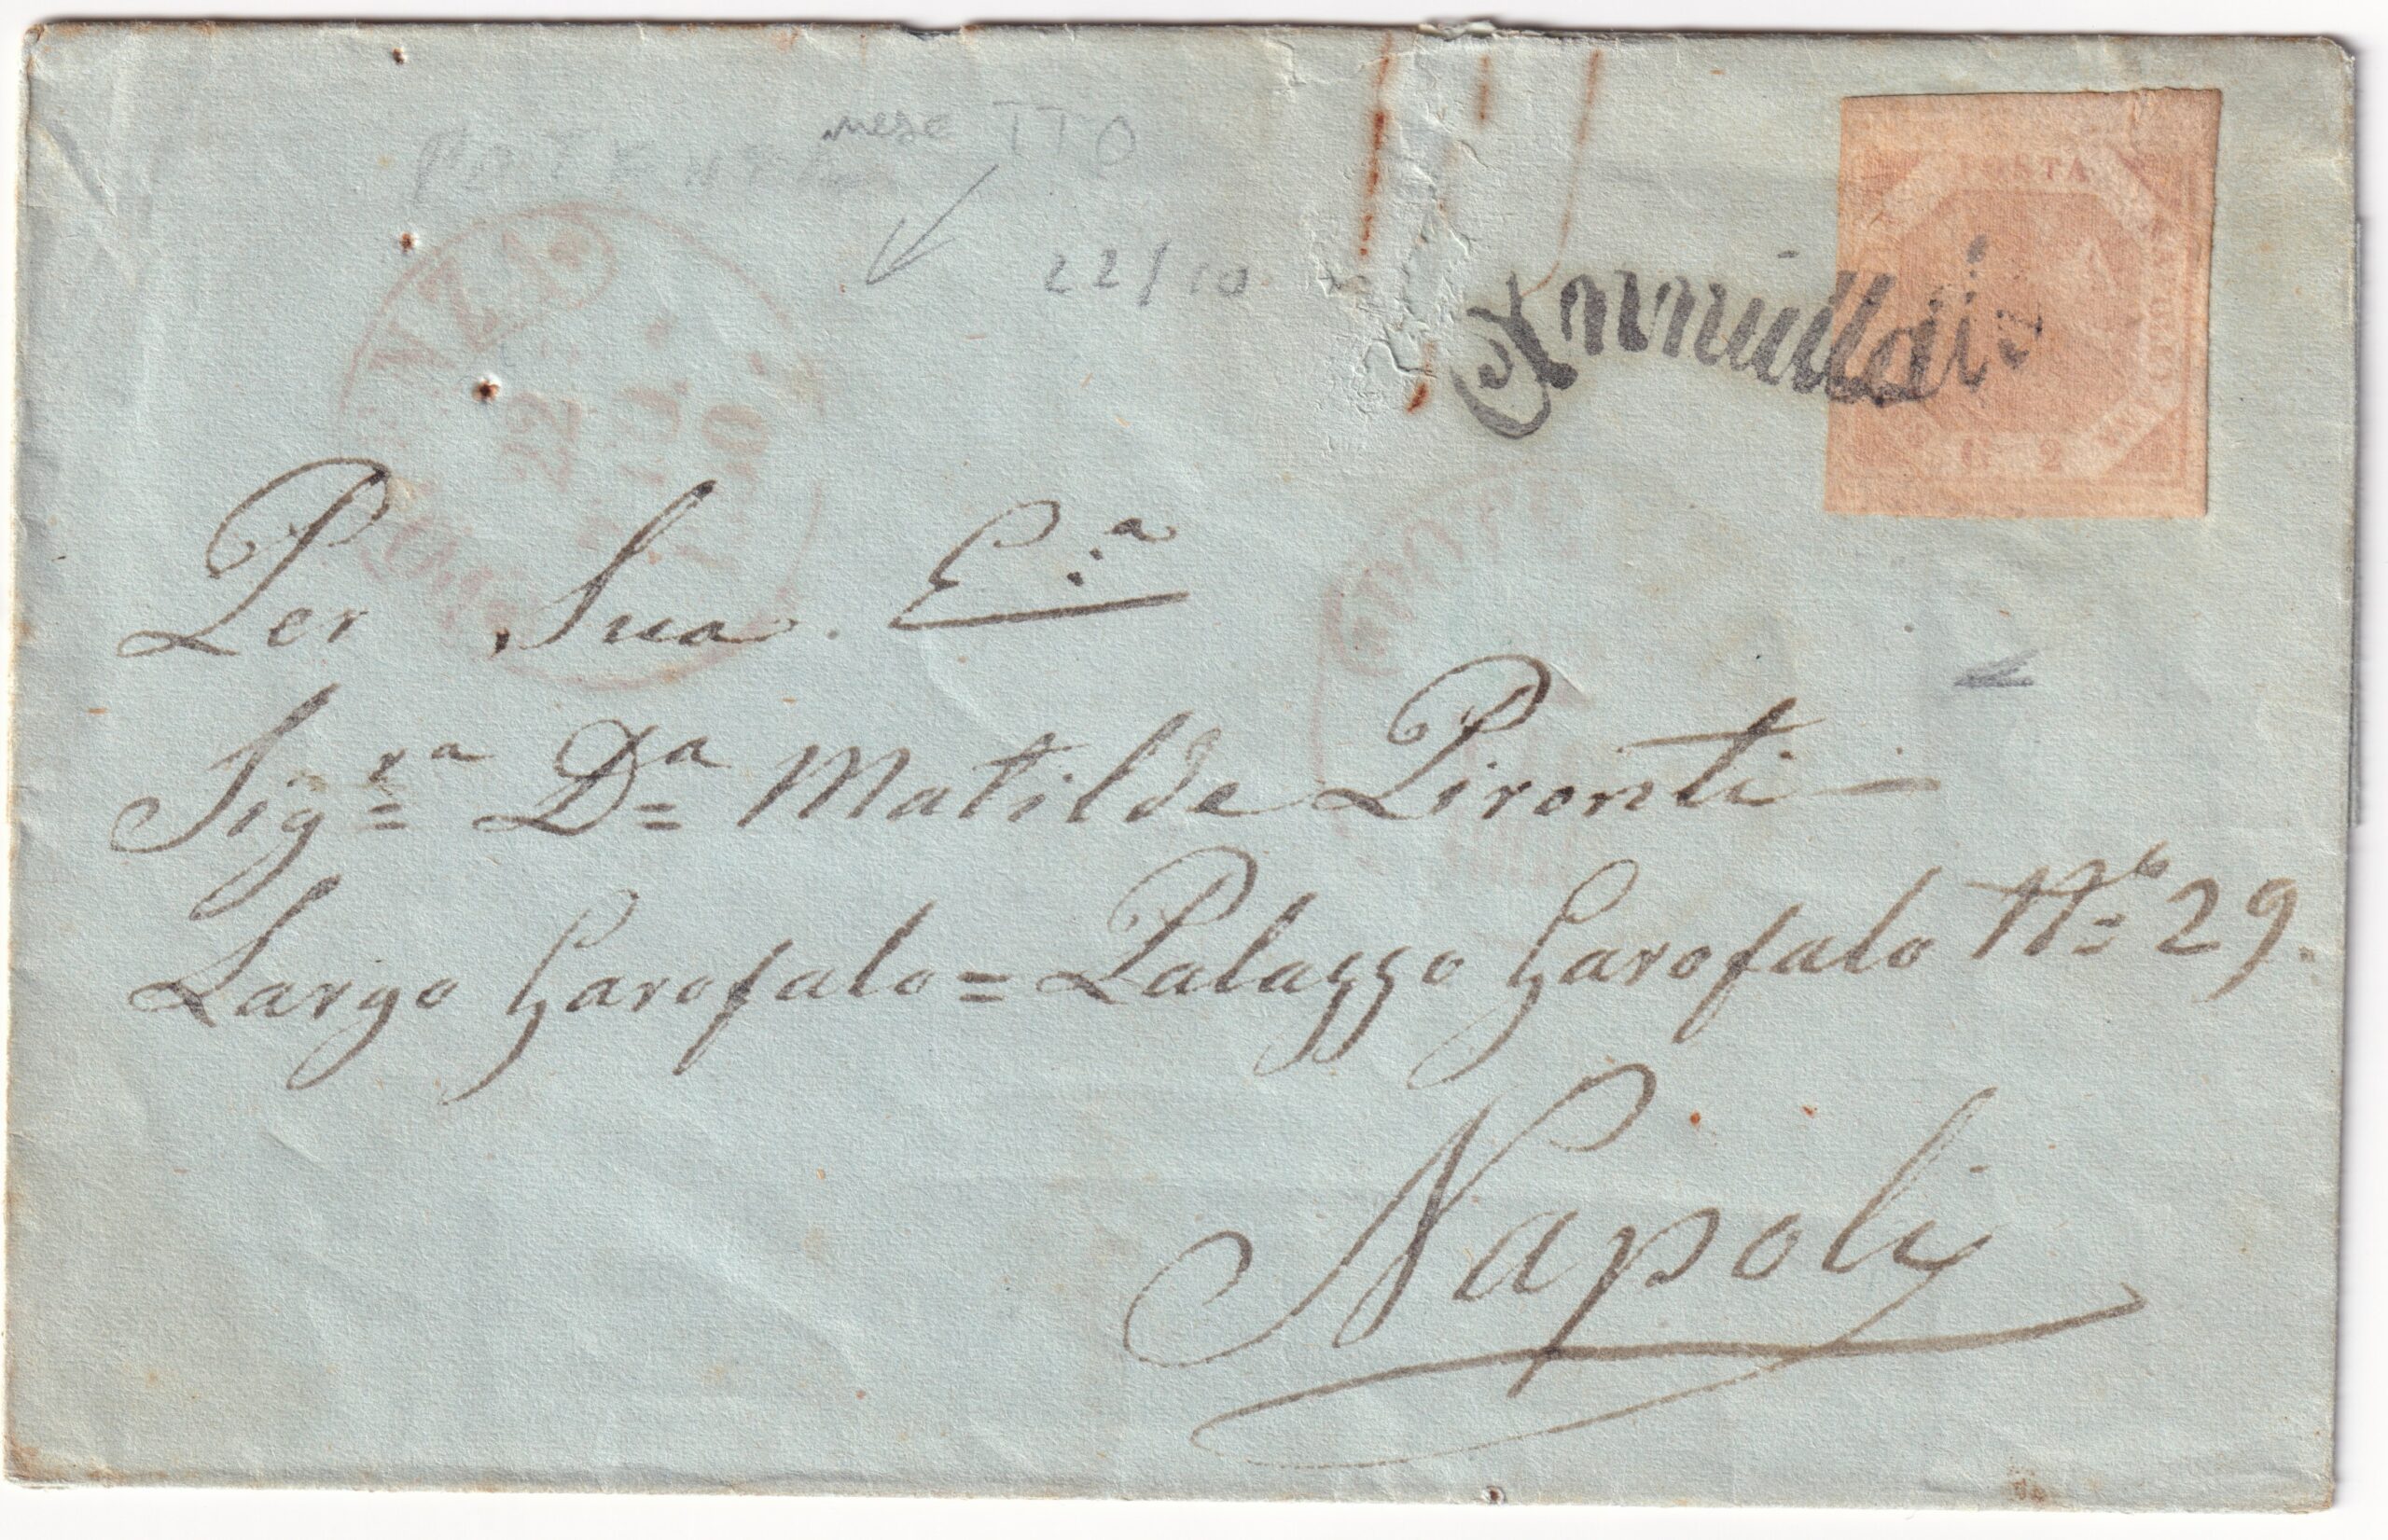 mese TTO
POTENZA
22/10
Annullato
POSTA
G. 2
22
Per Sua E.ª
Sig.ra D.a Matilde Pironti
Largo Garofalo = Palazzo Garofalo No 29.
Napoli